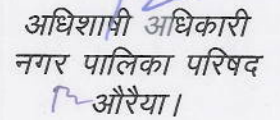 अधिशाषी अधिकारी
नगर पालिका परिषद
औरैया।